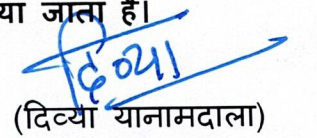 या जाता है।
दिव्या
(दिव्या यानामदाला)